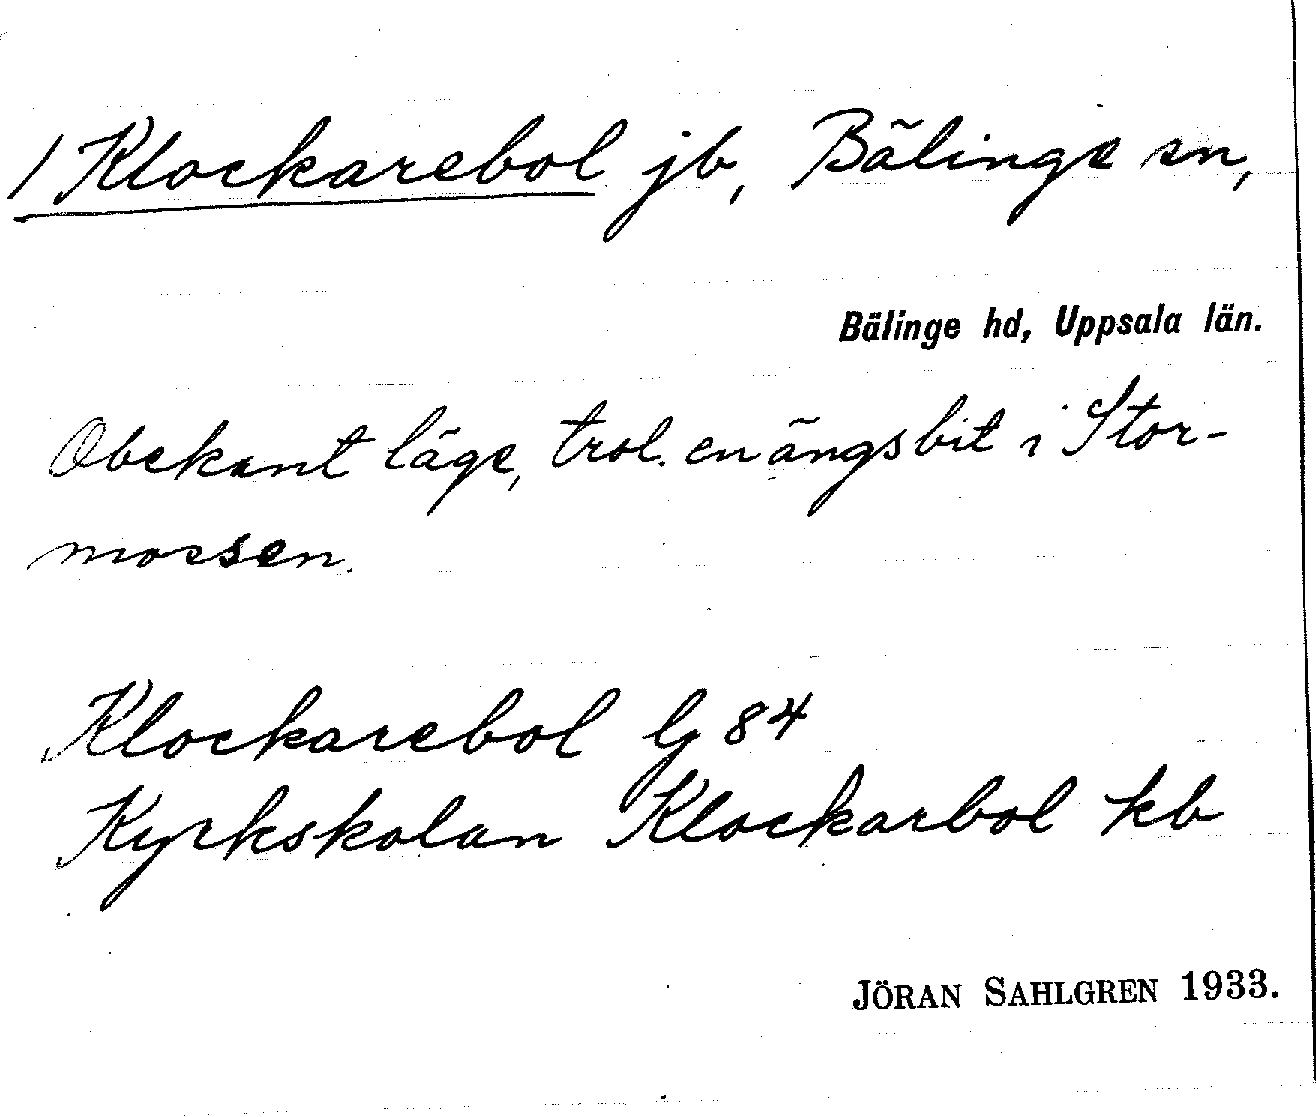 / Klockarebol jb, Bälinge sn,
Bälinge hd, Uppsala län.
Obekant läge, trol. en ängsbit i Stor-
mossen.
Klockarebol lj 84
Kyrkskolan Klockarbol kb
JÖRAN SAHLGREN 1933.